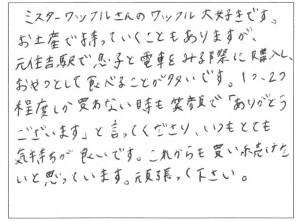 ミスターワッフルさんのワッフル大好きです。
お土産で持っていくこともありますが、
元住吉駅で息子と電車をみる際に購入し、
おやつとして食べることが多いです。1つ、2つ
程度しか買わない時も笑顔で「ありがとう
ございます」と言ってくださり、いつもとても
気持ちが良いです。これからも買い続けた
いと思っています。頑張って下さい。